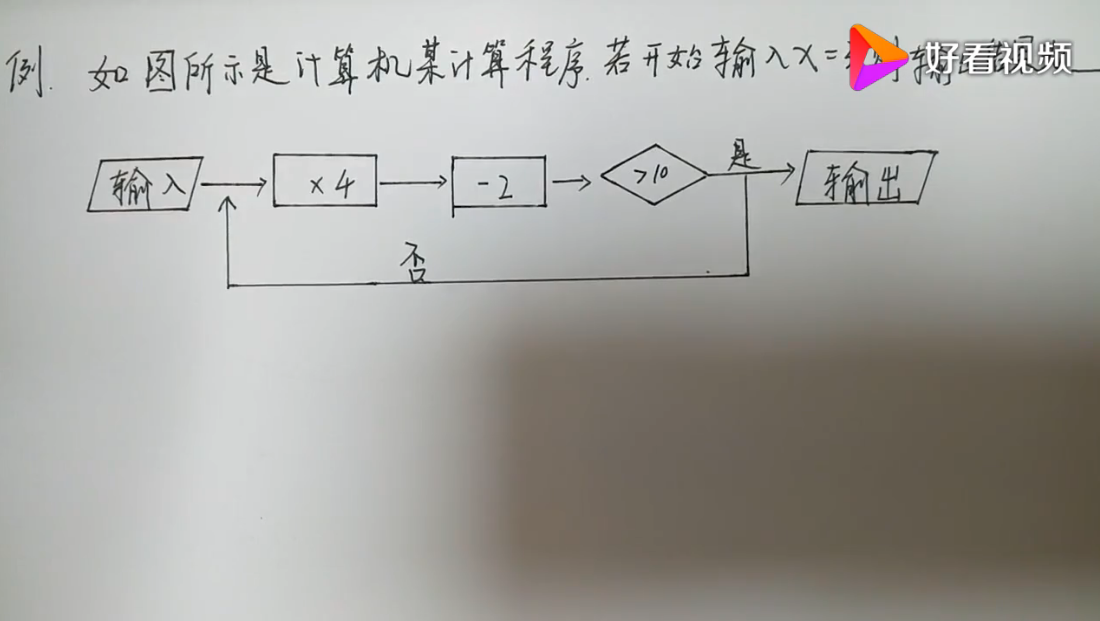 例. 如图所示是计算机某计算程序.若开始输入x= 输
好看视频
输入
×4
-2
>10
是
输出
否